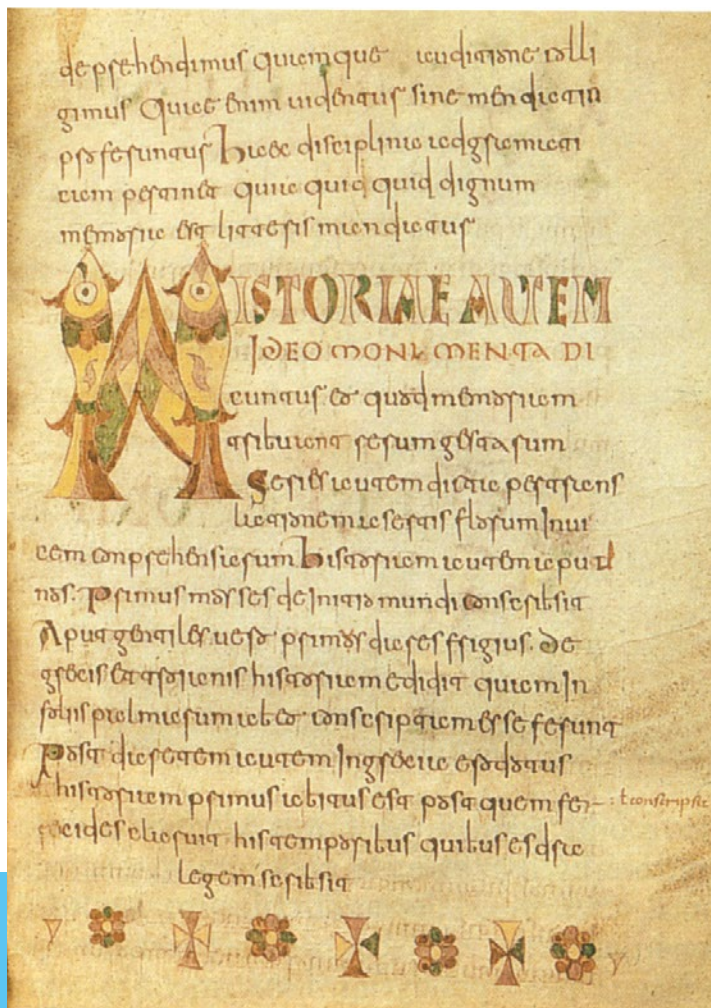 deprehendimus quam que auditione colli
gimus Quae enim uidentur sine mendacio
proferuntur haec disciplina ad gramati
cam pertinet quia quid quid dignum
memoria est litteris mandatur
HISTORIAE AUTEM
IDEO MONUMENTA DI
cuntur eo quod memoriam
tribuant rerum gestarum
Series autem dicta per trans
lationem a sertis florum Inui
cem conprehensarum historiam autem aput
nos. Primus moses de Initio mundi conscribsit
Aput gentiles uero primos dares frigius. de
grecis et troianis historiam edidit quam In
foliis palmarum ab eo conscriptam esse ferunt
Post daretem autem In grecia erodotus
historiam primus abitus est post quem fere
cides claruit his temporibus quibus esdra
legem scribsit